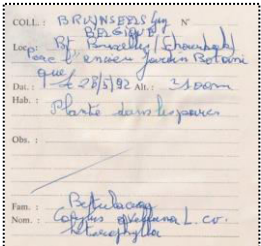 COLL. : BRUYNSEELS Guy N°
BELGIQUE
Loc. : Bt Bruxelles (Schaerbeek)
Parc l'ancien Jardin Botani
que
Dat. : le 28/5/92 Alt. : 
Hab. :
Plante dans les parcs
Obs. :
Fam. : Betulaceae
Nom. : Corylus avellana L. cv.
heterophylla